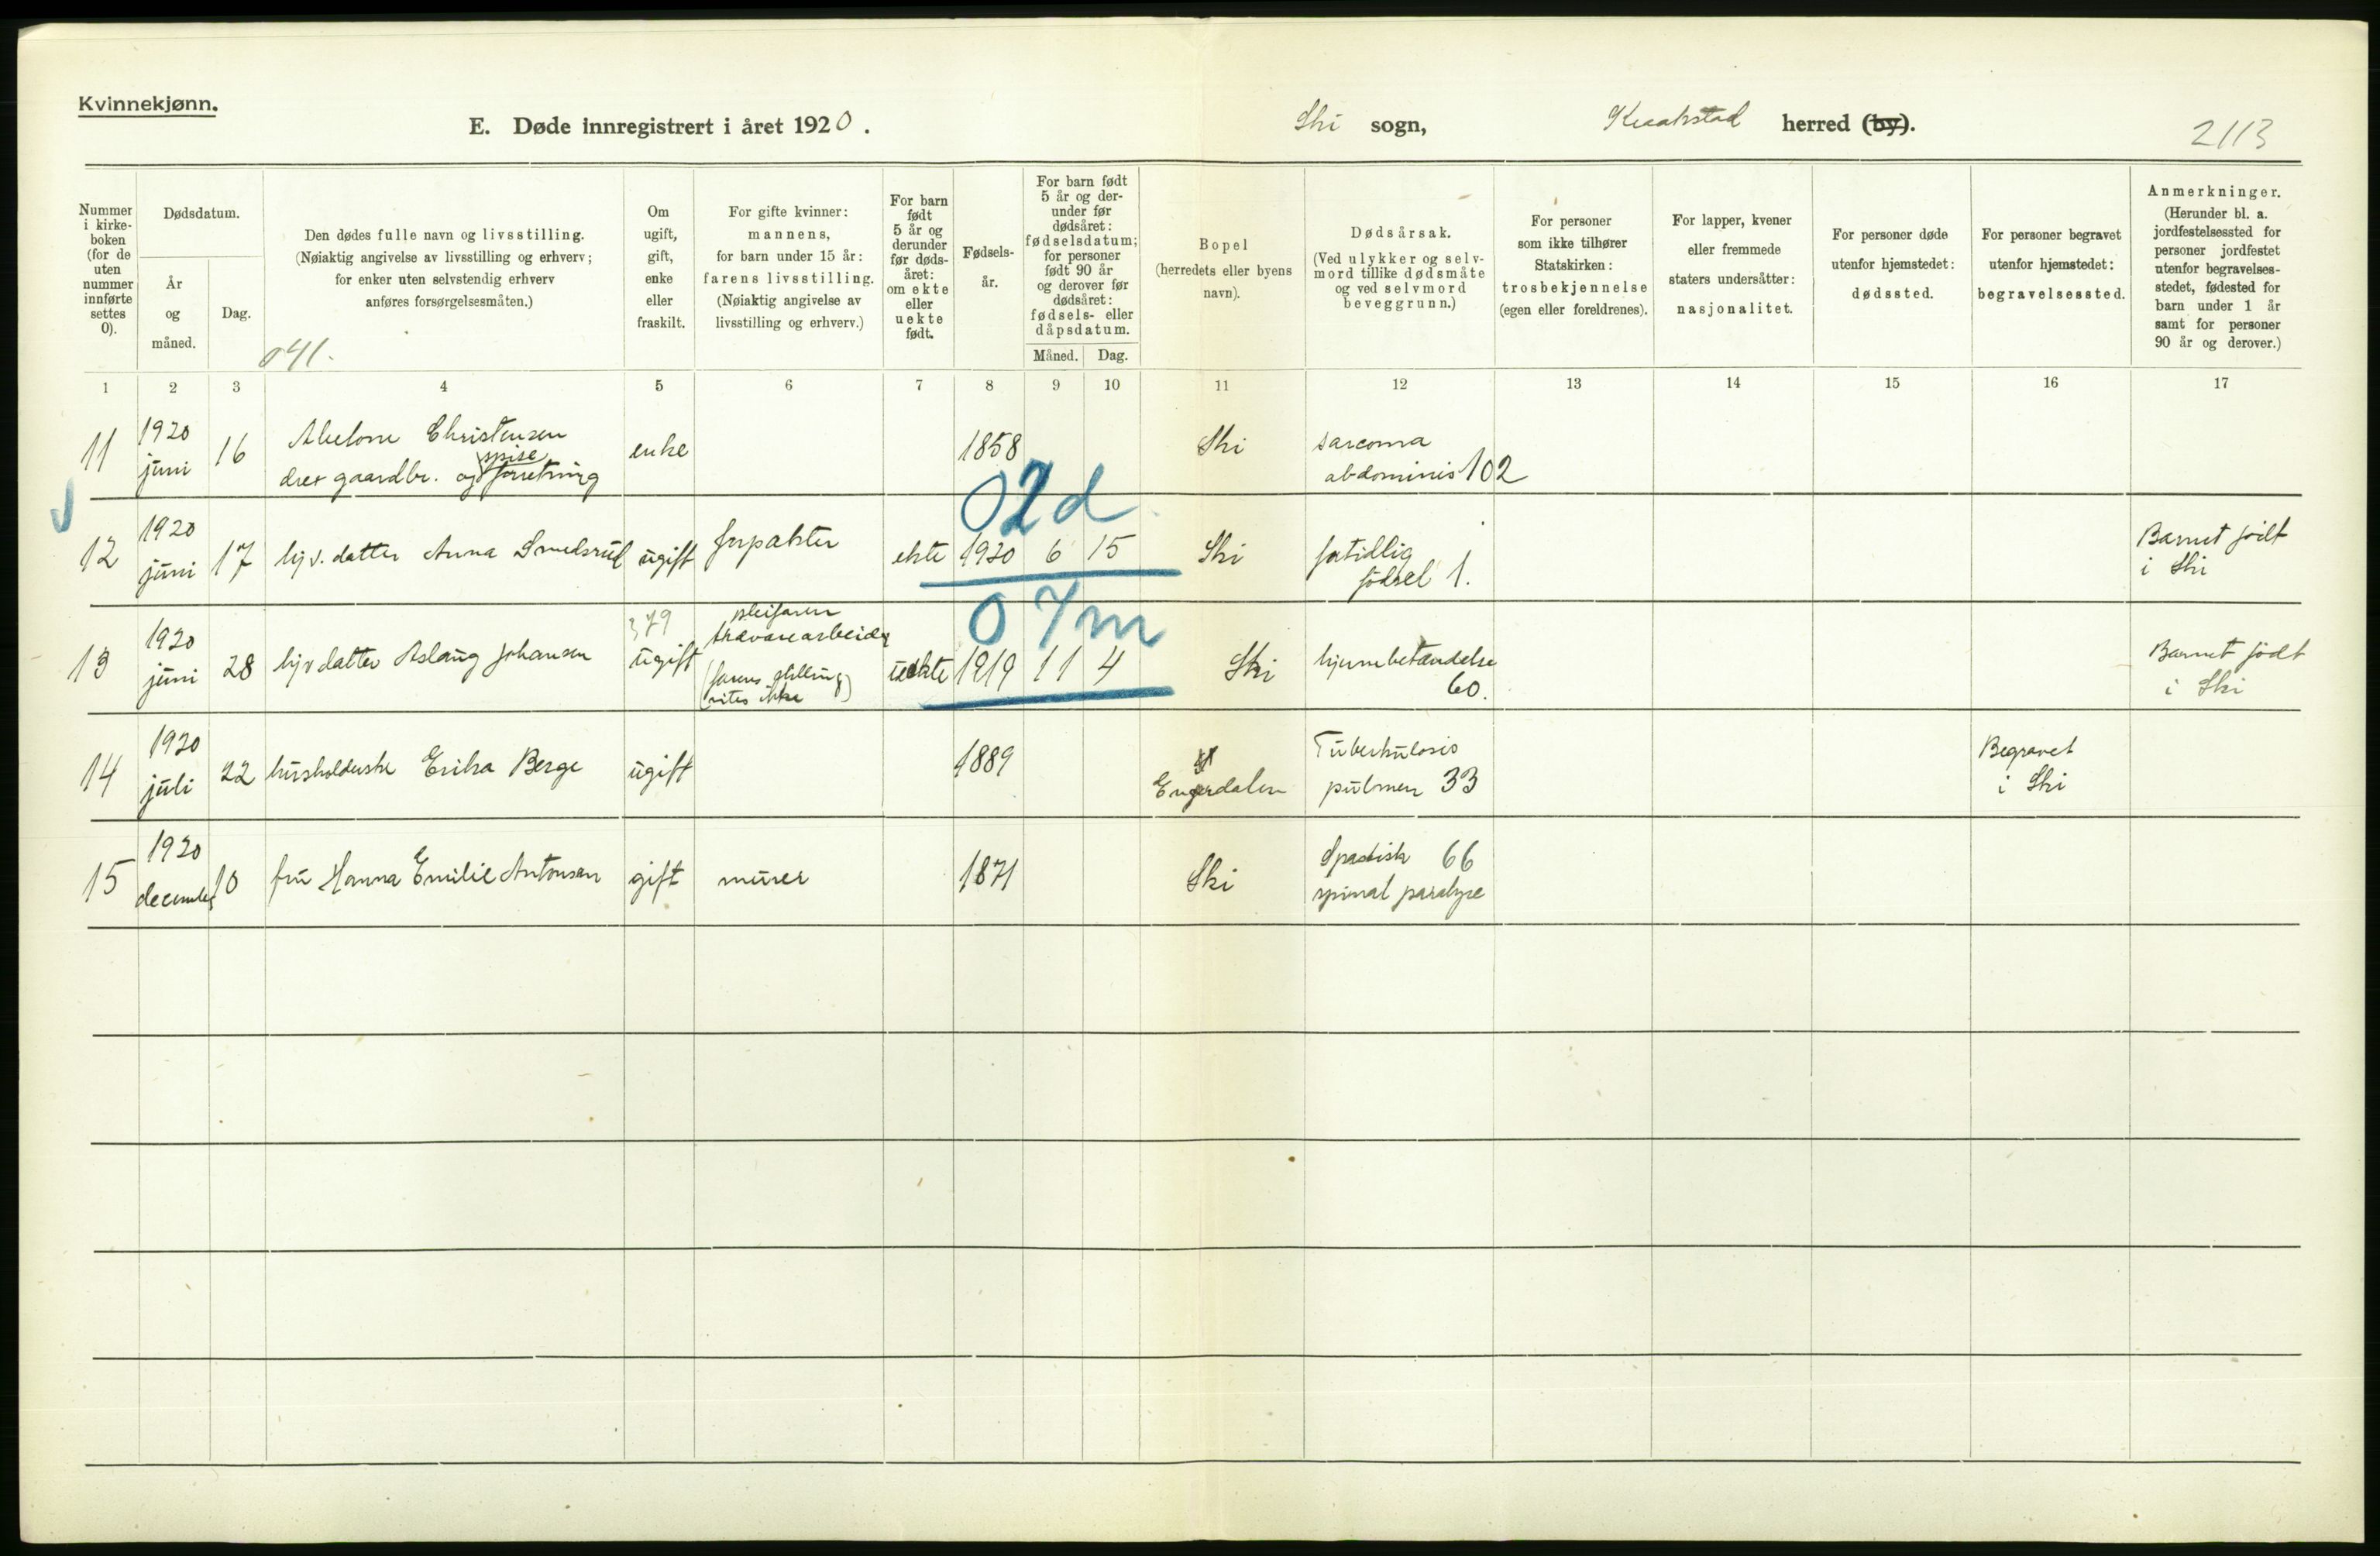 Kvinnekjønn.
E. Døde innregistrert i året 1920.
Ski sogn,
Kraakstad herred (by).
2113
Nummer i kirke-boken (for de uten nummer innførte settes 0).
Dødsdatum.
År og måned.
Dag.
Den dødes fulle navn og livsstilling.
(Nøiaktig angivelse av livsstilling og erhverv;
for enker uten selvstendig erhverv
anføres forsørgelsesmåten.)
041.
Om ugift, gift, enke eller fraskilt.
For gifte kvinner:
mannens,
for barn under 15 år:
farens livsstilling.
(Nøiaktig angivelse av
livsstilling og erhverv.)
For barn født 5 år og derunder før døds-året: om ekte eller uekte født.
Fødsels-år.
For barn født 5 år og der-under før dødsåret: fødselsdatum; for personer født 90 år og derover før dødsåret: fødsels- eller dåpsdatum.
Måned.
Dag.
Bopel
(herredets eller byens
navn).
Dødsårsak.
(Ved ulykker og selv-
mord tillike dødsmåte
og ved selvmord
beveggrunn.)
For personer
som ikke tilhører
Statskirken:
trosbekjennelse
(egen eller foreldrenes).
For lapper, kvener
eller fremmede
staters undersåtter:
nasjonalitet.
For personer døde
utenfor hjemstedet:
dødssted.
For personer begravet
utenfor hjemstedet:
begravelsessted.
Anmerkninger.
(Herunder bl. a.
jordfestelsessted for
personer jordfestet
utenfor begravelses-
stedet, fødested for
barn under 1 år
samt for personer
90 år og derover.)
1 2 3 4 5 6 7 8 9 10 11 12 13 14 15 16 17
11 1920 juni 16 Abelone Christensen
drev gaardbr. og spise forretning
enke 1858 Ski sarcoma
abdominis 102
02d
12 1920 juni 17 hjv. datter Anna Smedsrud ugift forpakter ekte 1920 6 15 Ski fortidlig
fødsel 1.
Barnet født
i Ski
07m
13 1920 juni 28 hjv datter Aslaug Johansen 379 ugift pleifaren
trævarearbeider
(farens stilling
vites ikke)
uekte 1919 11 4 Ski hjernebetændelse
60.
Barnet født
i Ski
14 1920 juli 22 husholderske Erika Berge ugift 1889 Engerdalen Tuberkulosis
pulmon 33
Begravet
i Ski
15 1920 december 10 fru Hanna Emilie Antonsen gift murer 1871 Ski Spastisk 66
spinal paralyse